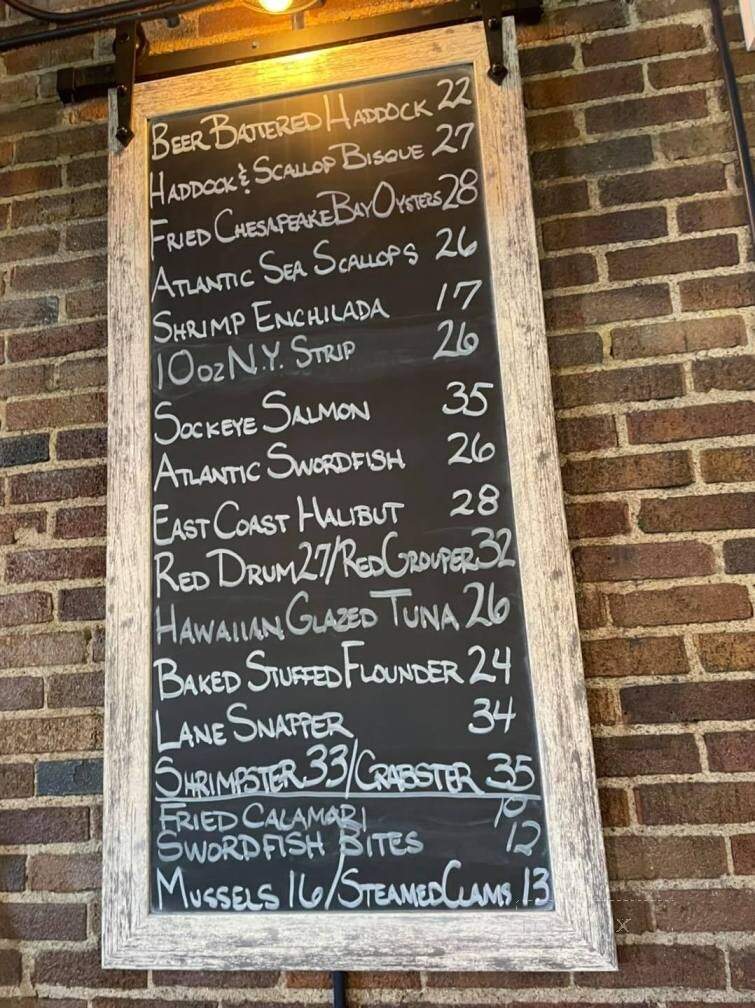 BEER BATTERED HADDOCK 22
HADDOCK & SCALLOP BISQUE 27
FRIED CHESAPEAKE BAY OYSTERS 28
ATLANTIC SEA SCALLOPS 26
SHRIMP ENCHILADA 17
10 OZ N.Y. STRIP 26
SOCKEYE SALMON 35
ATLANTIC SWORDFISH 26
EAST COAST HALIBUT 28
RED DRUM 27/RED GROUPER 32
HAWAIIAN GLAZED TUNA 26
BAKED STUFFED FLOUNDER 24
LANE SNAPPER 34
SHRIMPSTER 33/CRABSTER 35
FRIED CALAMARI
SWORDFISH BITES 12
MUSSELS 16/STEAMED CLAMS 13